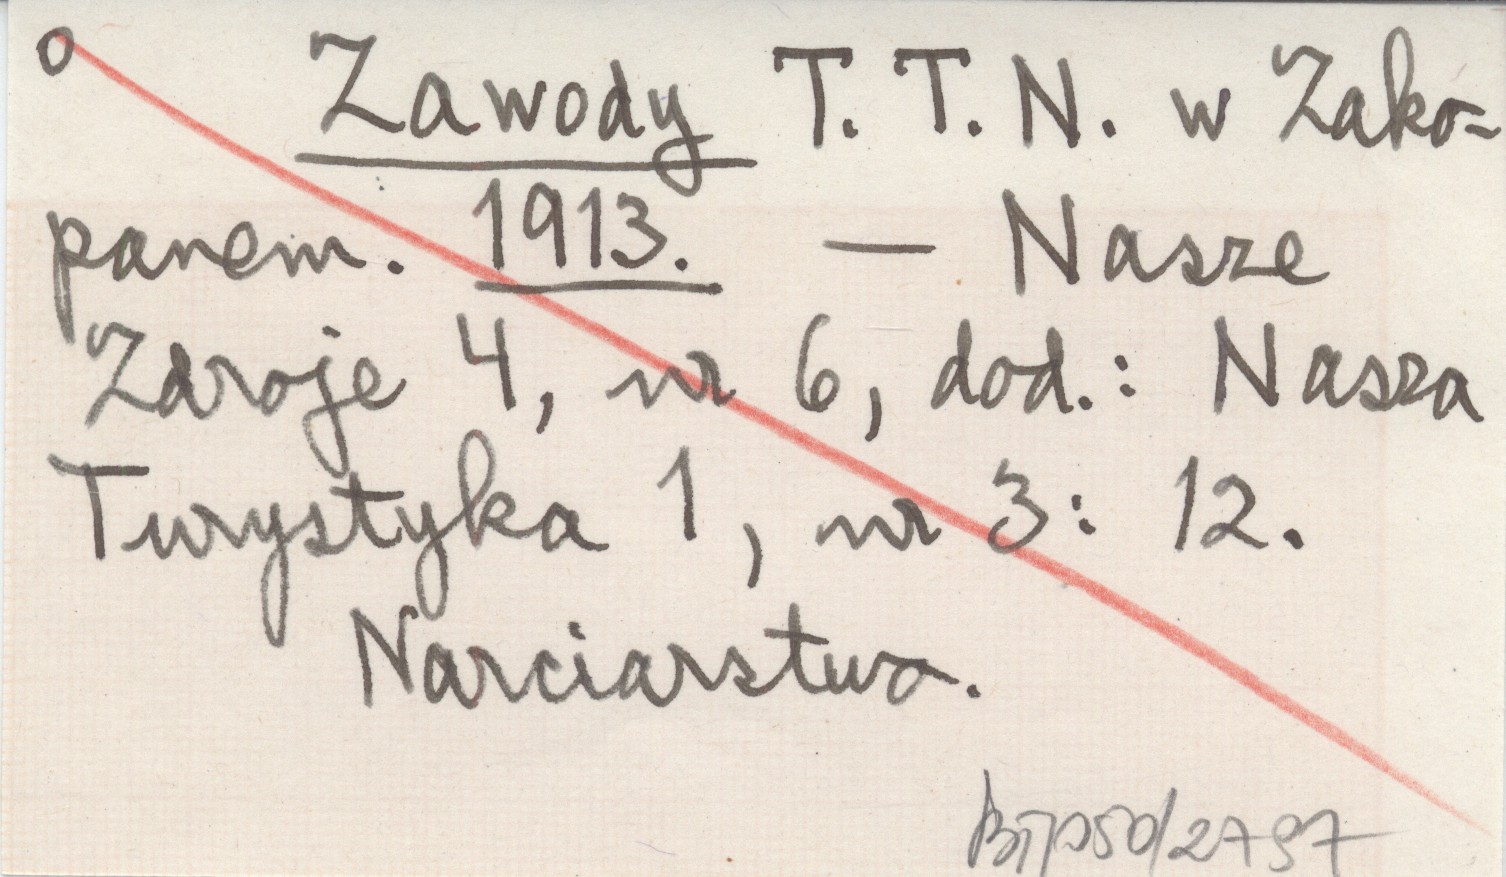 o Zawody T. T. N. w Zako-
panem. 1913. — Nasze
Zdroje 4, nr 6, dod.: Nasza
Turystyka 1, nr 3: 12.
Narciarstwo.